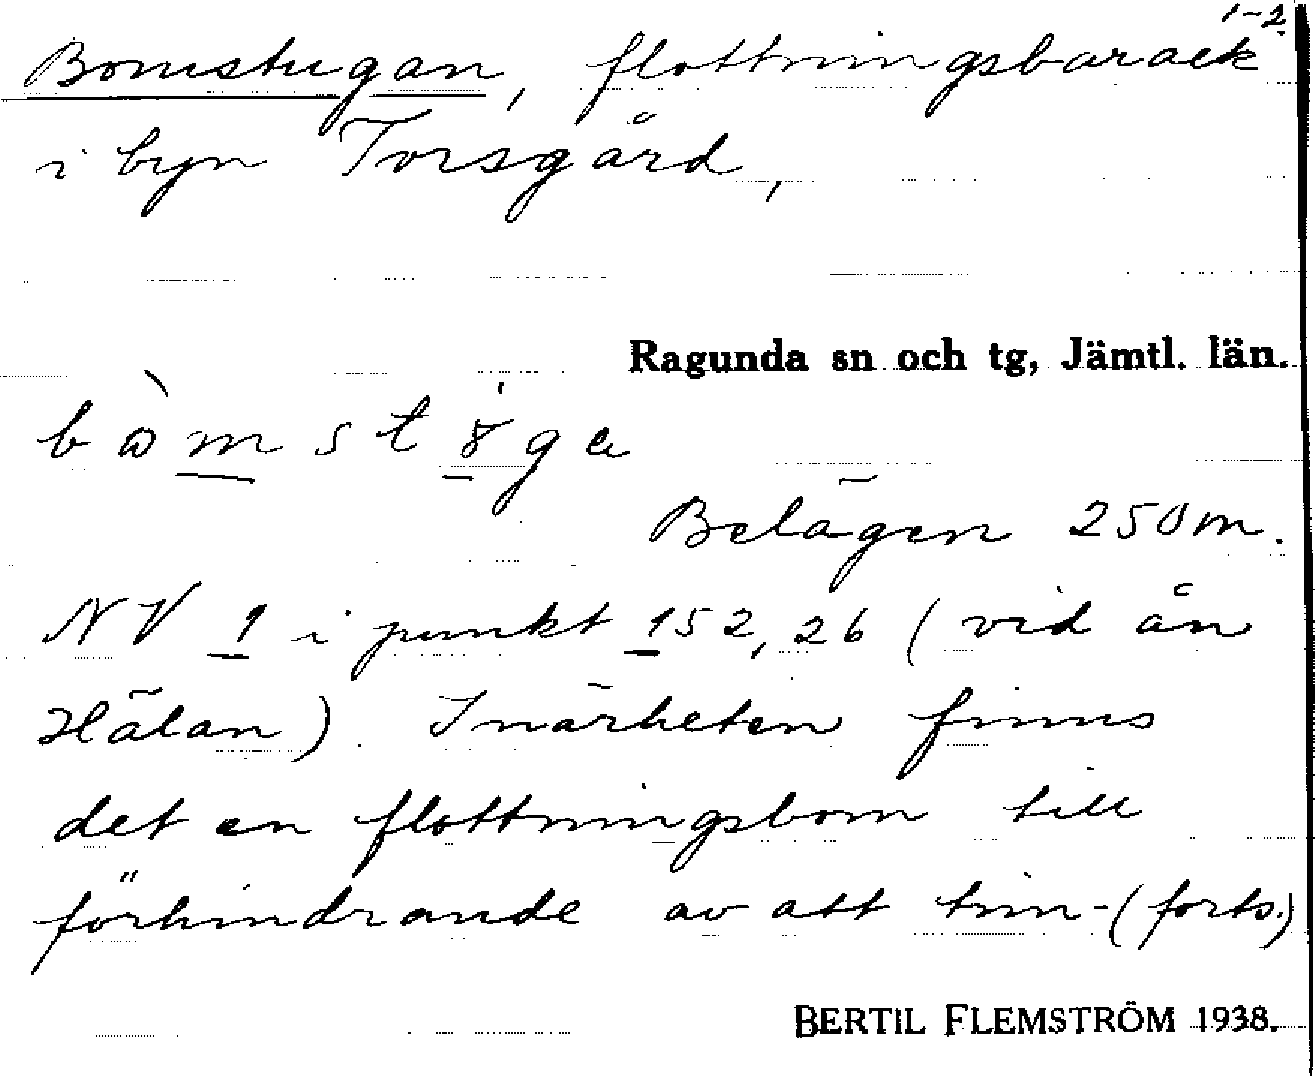 1-2
Bomstugan, flottningsbarack
i byn Torsgård,
Ragunda sn och tg, Jämtl. län.
Belägen 250 m.
NV 1 i punkt 152,26 (vid ån
Hälan). I närheten finns
det en flottningsbom till
förhindrande av att tim- (forts.)
BERTIL FLEMSTRÖM 1938.